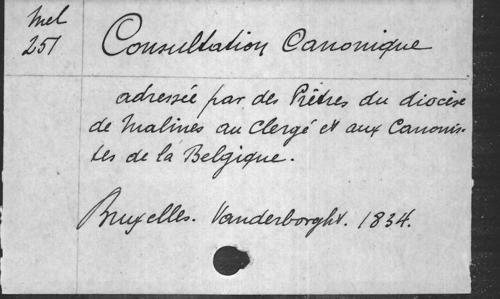 Mel
251
Consultation Canonique
adressée par des Prêtres du diocèse
de Malines au Clergé et aux Canonis-
tes de la Belgique.
Bruxelles. Vanderborght. 1834.